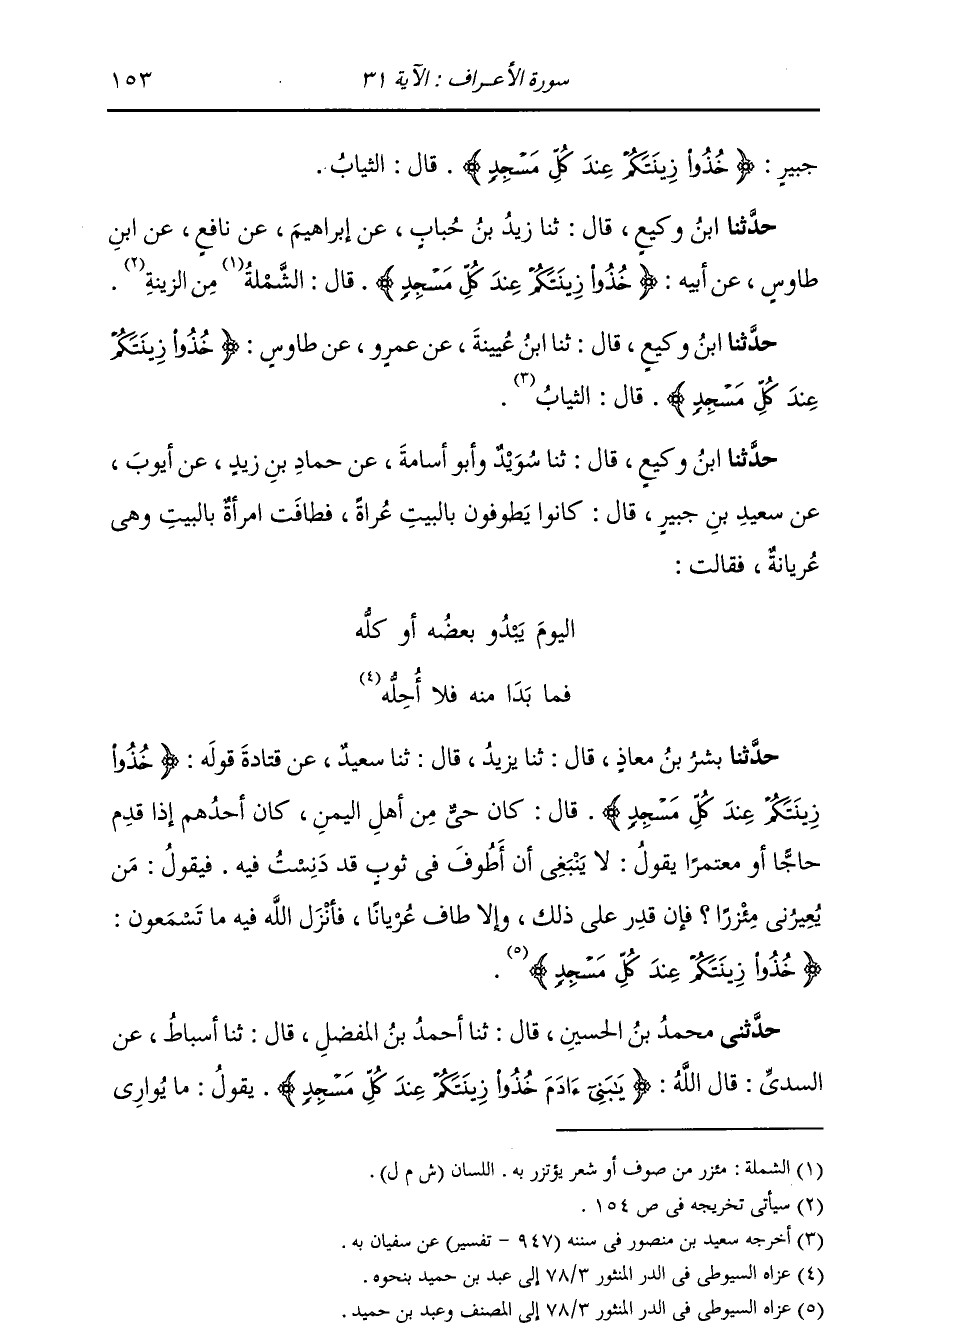 سورة الأعراف : الآية ٣١ ١٥٣
جبيرٍ : ﴿ خُذُوا۟ زِينَتَكُمْ عِندَ كُلِّ مَسْجِدٍ ﴾ . قال : الثيابُ .
حدَّثنا ابنُ وكيعٍ ، قال : ثنا زيدُ بنُ حُبابٍ ، عن إبراهيمَ ، عن نافعٍ ، عن ابنِ
طاوسٍ ، عن أبيه : ﴿ خُذُوا۟ زِينَتَكُمْ عِندَ كُلِّ مَسْجِدٍ ﴾ . قال : الشَّمْلةُ(١) مِن الزينةِ(٢) .
حدَّثنا ابنُ وكيعٍ ، قال : ثنا ابنُ عُيينةَ ، عن عمرٍو ، عن طاوسٍ : ﴿ خُذُوا۟ زِينَتَكُمْ
عِندَ كُلِّ مَسْجِدٍ ﴾ . قال : الثيابُ(٣) .
حدَّثنا ابنُ وكيعٍ ، قال : ثنا سُوَيْدٌ وأبو أسامةَ ، عن حمادِ بنِ زيدٍ ، عن أيوبَ ،
عن سعيدِ بنِ جبيرٍ ، قال : كانوا يَطوفون بالبيتِ عُراةً ، فطافَت امرأةٌ بالبيتِ وهى
عُريانةٌ ، فقالت :
اليومَ يَبْدُو بعضُه أو كلُّه
فما بَدَا منه فلا أُحِلُّه(٤)
حدَّثنا بشرُ بنُ معاذٍ ، قال : ثنا يزيدُ ، قال : ثنا سعيدٌ ، عن قتادةَ قولَه : ﴿ خُذُوا۟
زِينَتَكُمْ عِندَ كُلِّ مَسْجِدٍ ﴾ . قال : كان حىٌّ مِن أهلِ اليمنِ ، كان أحدُهم إذا قدِم
حاجًّا أو معتمرًا يقولُ : لا يَنْبَغِى أن أَطُوفَ فى ثوبٍ قد دَنِسْتُ فيه . فيقولُ : مَن
يُعِيرُنى مِئْزرًا ؟ فإن قدِر على ذلك ، وإلا طاف عُرْيانًا ، فأنْزَل اللَّه فيه ما تَسْمَعون :
﴿ خُذُوا۟ زِينَتَكُمْ عِندَ كُلِّ مَسْجِدٍ ﴾(٥) .
حدَّثنى محمدُ بنُ الحسينِ ، قال : ثنا أحمدُ بنُ المفضلِ ، قال : ثنا أسباطُ ، عن
السدىِّ : قال اللَّهُ : ﴿ يَـٰبَنِىٓ ءَادَمَ خُذُوا۟ زِينَتَكُمْ عِندَ كُلِّ مَسْجِدٍ ﴾ . يقولُ : ما يُوارِى
(١) الشملة : مئزر من صوف أو شعر يؤتزر به . اللسان (ش م ل) .
(٢) سيأتى تخريجه فى ص ١٥٤ .
(٣) أخرجه سعيد بن منصور فى سننه (٩٤٧ - تفسير) عن سفيان به .
(٤) عزاه السيوطى فى الدر المنثور ٧٨/٣ إلى عبد بن حميد بنحوه .
(٥) عزاه السيوطى فى الدر المنثور ٧٨/٣ إلى المصنف وعبد بن حميد .